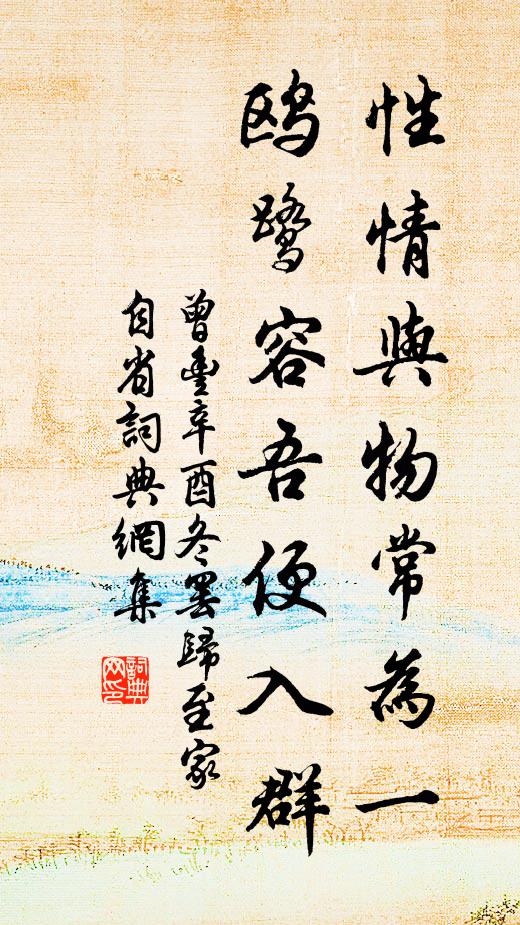 性情與物常為一
鸥鹭容吾便入群
曾豐辛酉冬罢歸至家
自省詞典網集
詞典网印